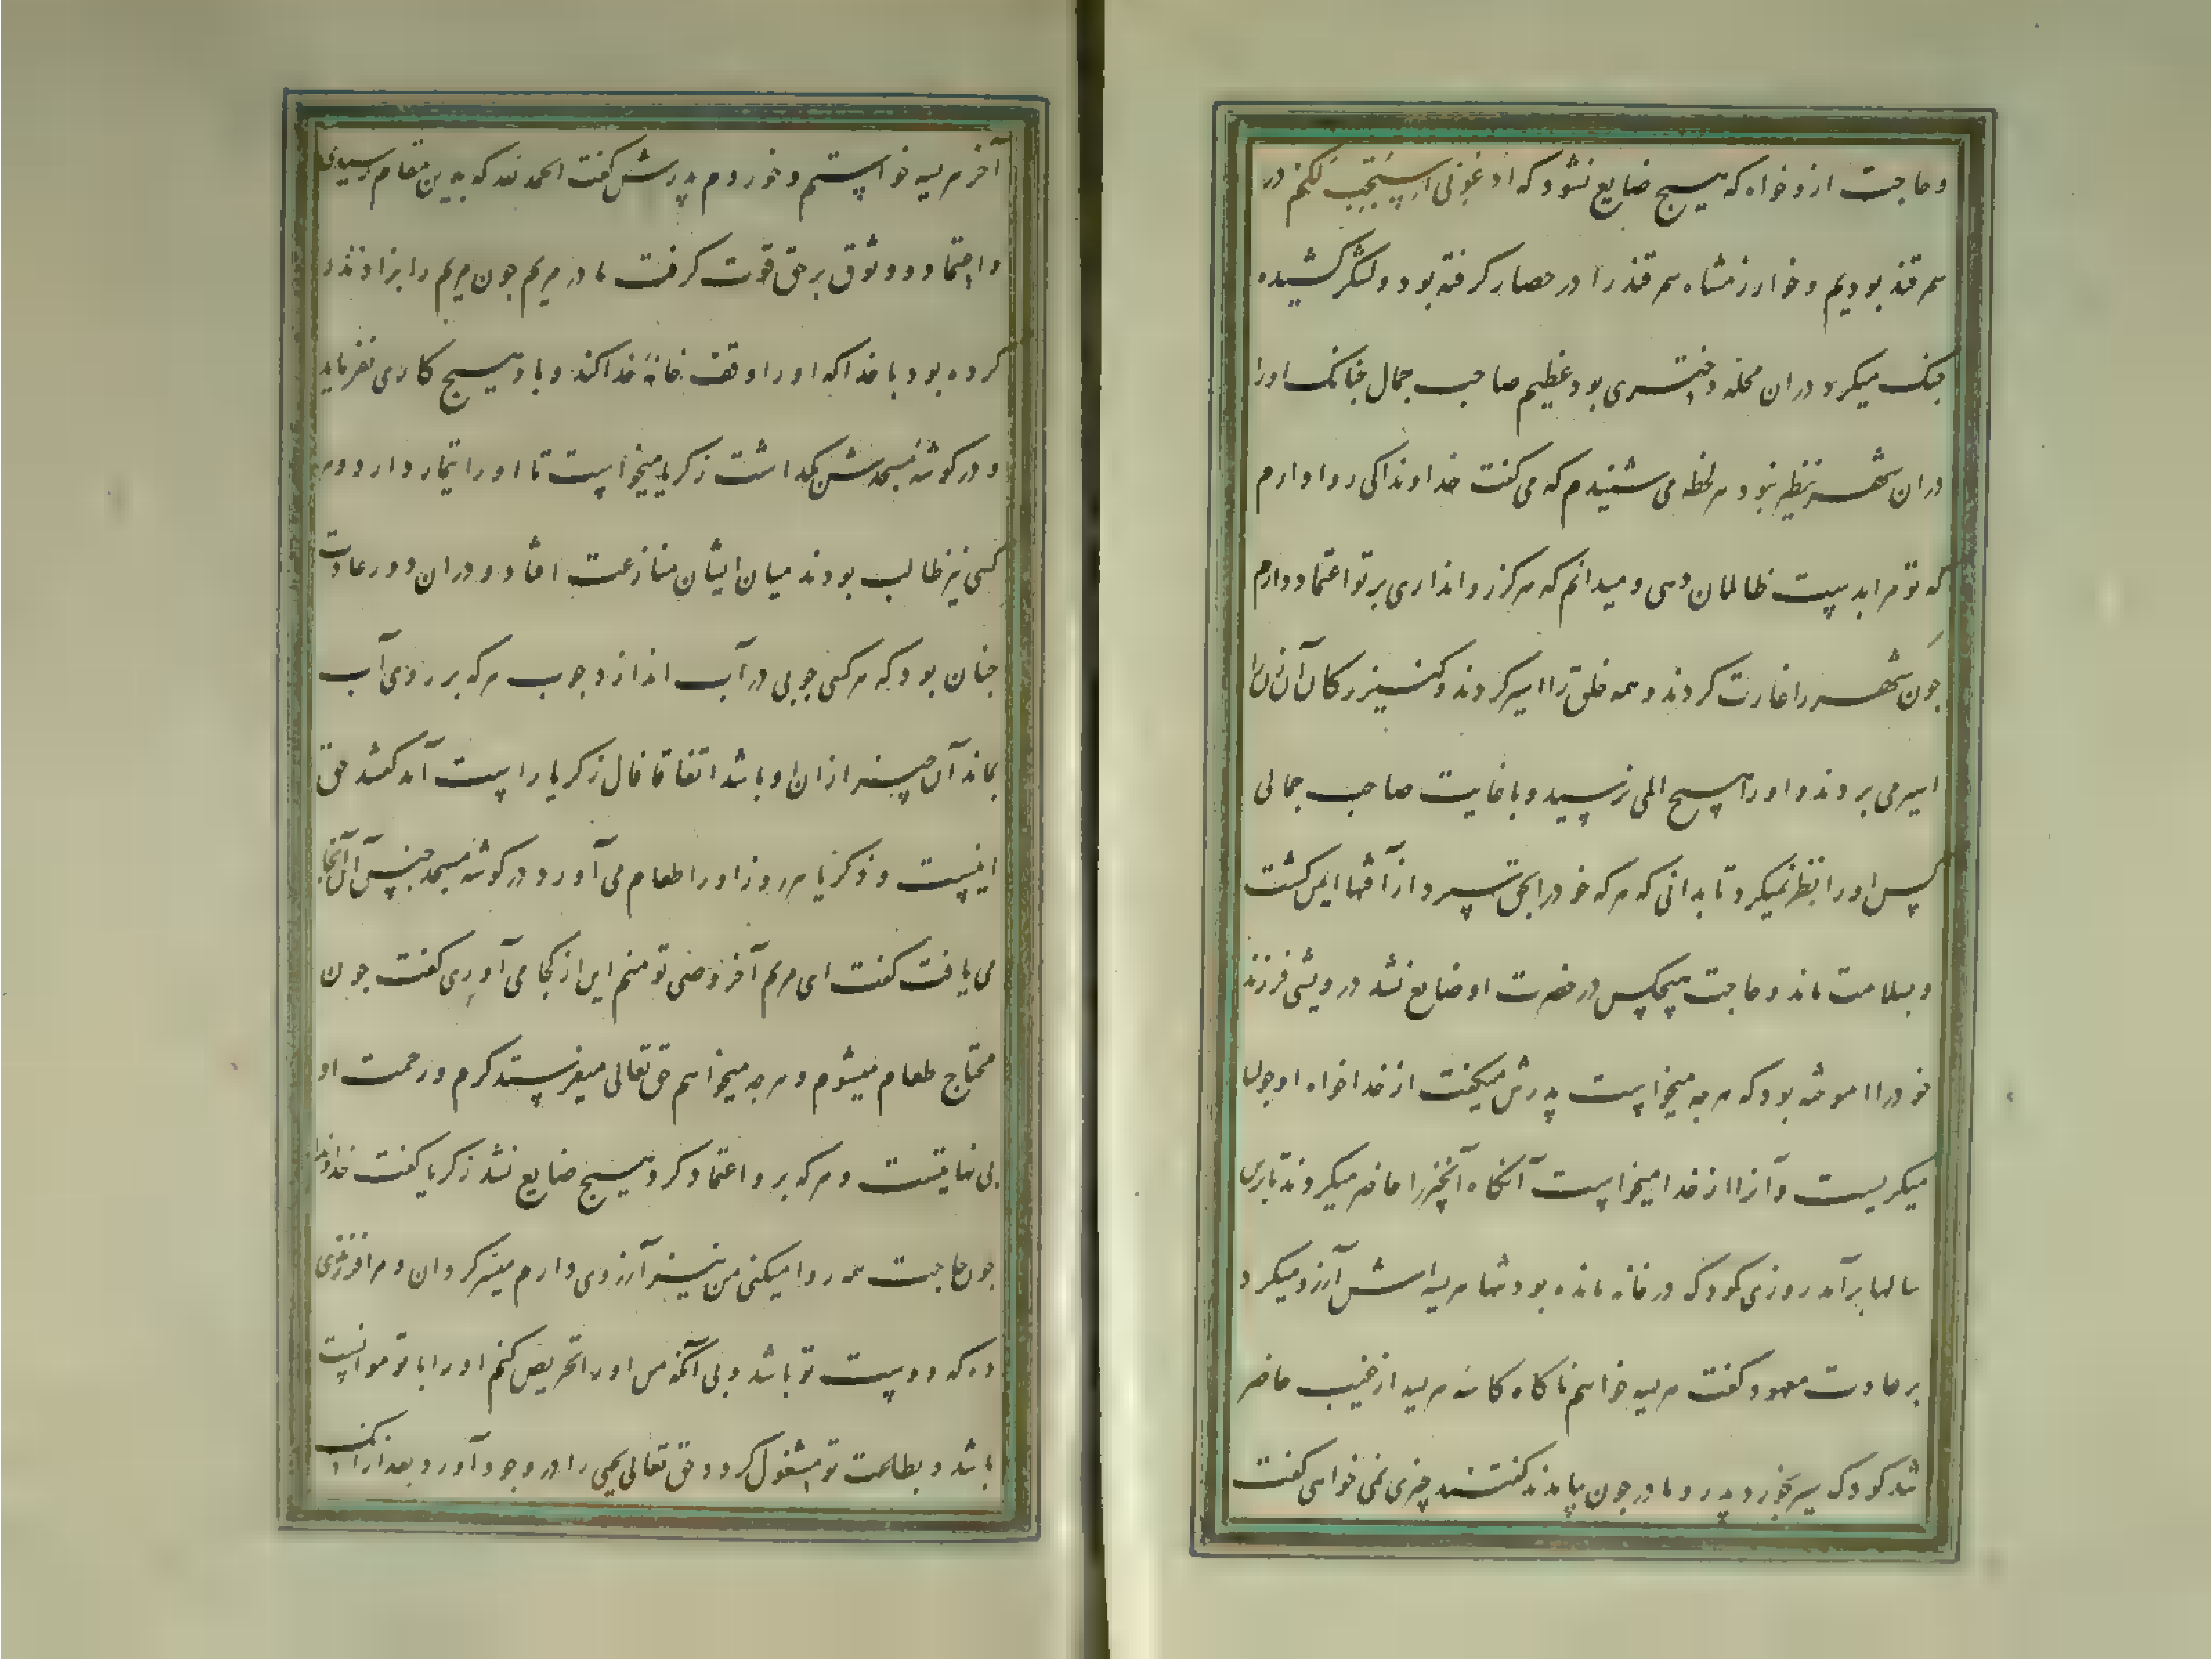 و حاجت ازو خواه که هیچ ضایع نشود که ادعونی استجب لکم در
سمرقند بودیم و خوارزمشاه سمرقند را در حصار گرفته بود و لشکر کشیده
جنک میکرد دران محله دختری بود عظیم صاحب جمال چنانک اورا
دران شهر نظیر نبود هر لحظه می شنیدم که می کفت خداوندا کی روا داری
که تو مرا بدست ظالمان دهی و میدانم که هرکز روا نداری بر تو اعتماد دارم
چون شهر را غارت کردند و همه خلق را اسیر کردند و کنیزکان آن زن را
اسیر می بردند و اورا هیچ المی نرسید و با غایت صاحب جمالی
کس اورا نظر نمیکرد تا بدانی که هر که خود را بحق سپرد از آفتها ایمن کشت
و بسلامت ماند و حاجت هیچکس در حضرت او ضایع نشد درویشی فرزند
خود را اموخته بود که هرچه میخواست پدرش میکفت از خدا خواه او چون
میکریست و آنرا از خدا میخواست آنکاه آنچیز را حاضر میکردند تا برین
سالها برآمد روزی کودک در خانه مانده بود تنها هریسه اش آرزو میکرد
بر عادت معهود کفت هریسه خواهم ناکاه کاسه هریسه از غیب حاضر
شد کودک سیر بخورد پدر و مادر چون بیامدند کفتند چیزی نمی خواهی کفت
آخر هریسه خواستم و خوردم پدرش کفت الحمد لله که بدین مقام رسیدی
و اعتماد و وثوق بر حق قوت کرفت مادر مریم چون مریم را بزاد نذر
کرده بود با خدا که اورا وقف خانه خدا کند و با او هیچ کاری نفرماید
و در کوشه مسجدش بکذاشت زکریا میخواست تا اورا تیمار دارد و هر
کسی نیز طالب بودند میان ایشان منازعت افتاد و دران دور عادت
چنان بود که هر کسی چوبی در آب اندازد چوب هر که بر روی آب
بماند آن چیز ازان او باشد اتفاقا فال زکریا راست آمد کفتند حق
اینست و زکریا هر روز اورا طعام می آورد و در کوشه مسجد جنس آن آنجا
می یافت کفت ای مریم آخر وصی تو منم این از کجا می آوری کفت چون
محتاج طعام میشوم و هرچه میخواهم حق تعالی میفرستد کرم و رحمت او
بی نهایتست و هر که برو اعتماد کرد هیچ ضایع نشد زکریا کفت خداوندا
چون حاجت همه روا میکنی من نیز آرزوی دارم میسر کردان و مرا فرزندی
ده که دوست تو باشد و بی آنکه من اورا تحریص کنم اورا با تو موانست
باشد و بطاعت تو مشغول کردد حق تعالی یحیی را در وجود آورد بعد ازانک